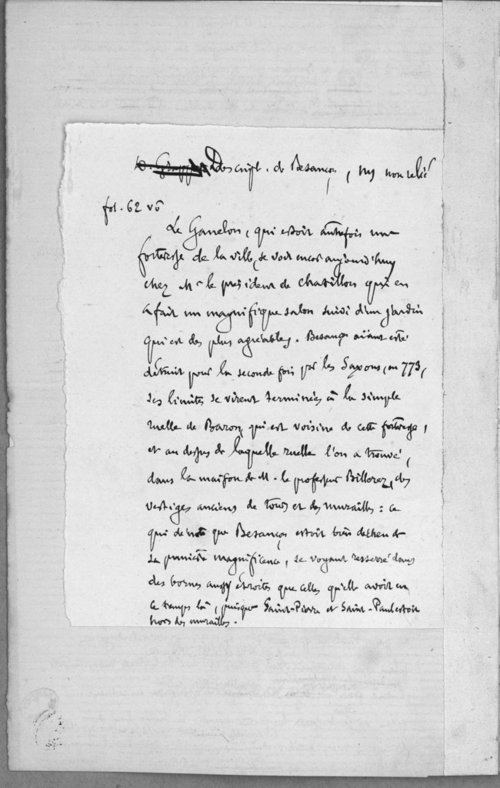 Descript. de Besançon, ms non relié
fol. 62 v°
Le Ganelon, qui estoit autrefois une
forteresse de la ville, se voit encor aujourd'huy
chez Mr le président de Chatillon qui en
a fait un magnifique salon suivi d'un jardin
qui est des plus agréables. Besançon aiant esté
détruit pour la seconde fois par les Saxons, en 773,
ses limites se virent terminées à la simple
ruelle de Baron, qui est voisine de cette forteresse,
et au dessus de laquelle ruelle l'on a trouvé,
dans la maison de M. le professeur Billerez, des
vestiges anciens de tours et des murailles : ce
qui dénote que Besançon estoit bien décheu de
sa première magnificence, se voyant resserré dans
des bornes aussy étroites que celles qu'elle avoit en
ce temps là, puisque Saint-Pierre et Saint-Paul estoit
hors des murailles.